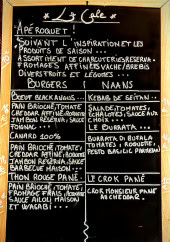 Le Cake
Apéroquet!
Suivant l'inspiration et les
produits de saison ...
Assortiment de charcuteries
fromages affinés vache/brebis
Divers fruits et légumes ...
Burgers
Naans
Boeuf Black Angus ...
Pain brioché, tomate
cheddar affiné, roquette
jambon Reserva, sauce
Canard 100%
Pain brioché, tomate
cheddar affiné, roquette
jambon Reserva, sauce
barbecue maison ...
Thon rouge pané ...
Pain brioché, tomate
fromage frais,
sauce aïoli maison
et wasabi ...
Kebab de seitan ...
Salade, tomates,
échalotes, sauce aux
choix ...
Le Burrata ...
Burrata di bufala
tomates, roquette,
pesto basilic
Le Crok Pané
Crok Monsieur pané
au cheddar.